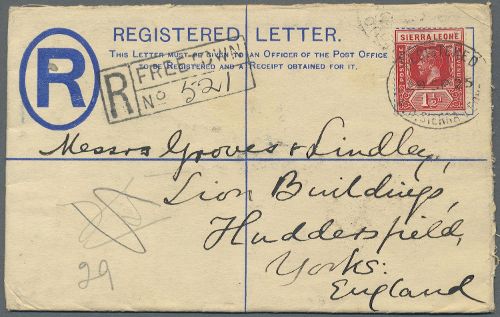 REGISTERED LETTER.
THIS LETTER MUST BE GIVEN TO AN OFFICER OF THE POST OFFICE
TO BE REGISTERED AND A RECEIPT OBTAINED FOR IT.
R
R FREETOWN
No 521
SIERRA LEONE
POSTAGE
1½d
REGISTERED
SIERRA
Messrs Groves & Lindley,
Lion Buildings,
Huddersfield,
Yorks.
England
29